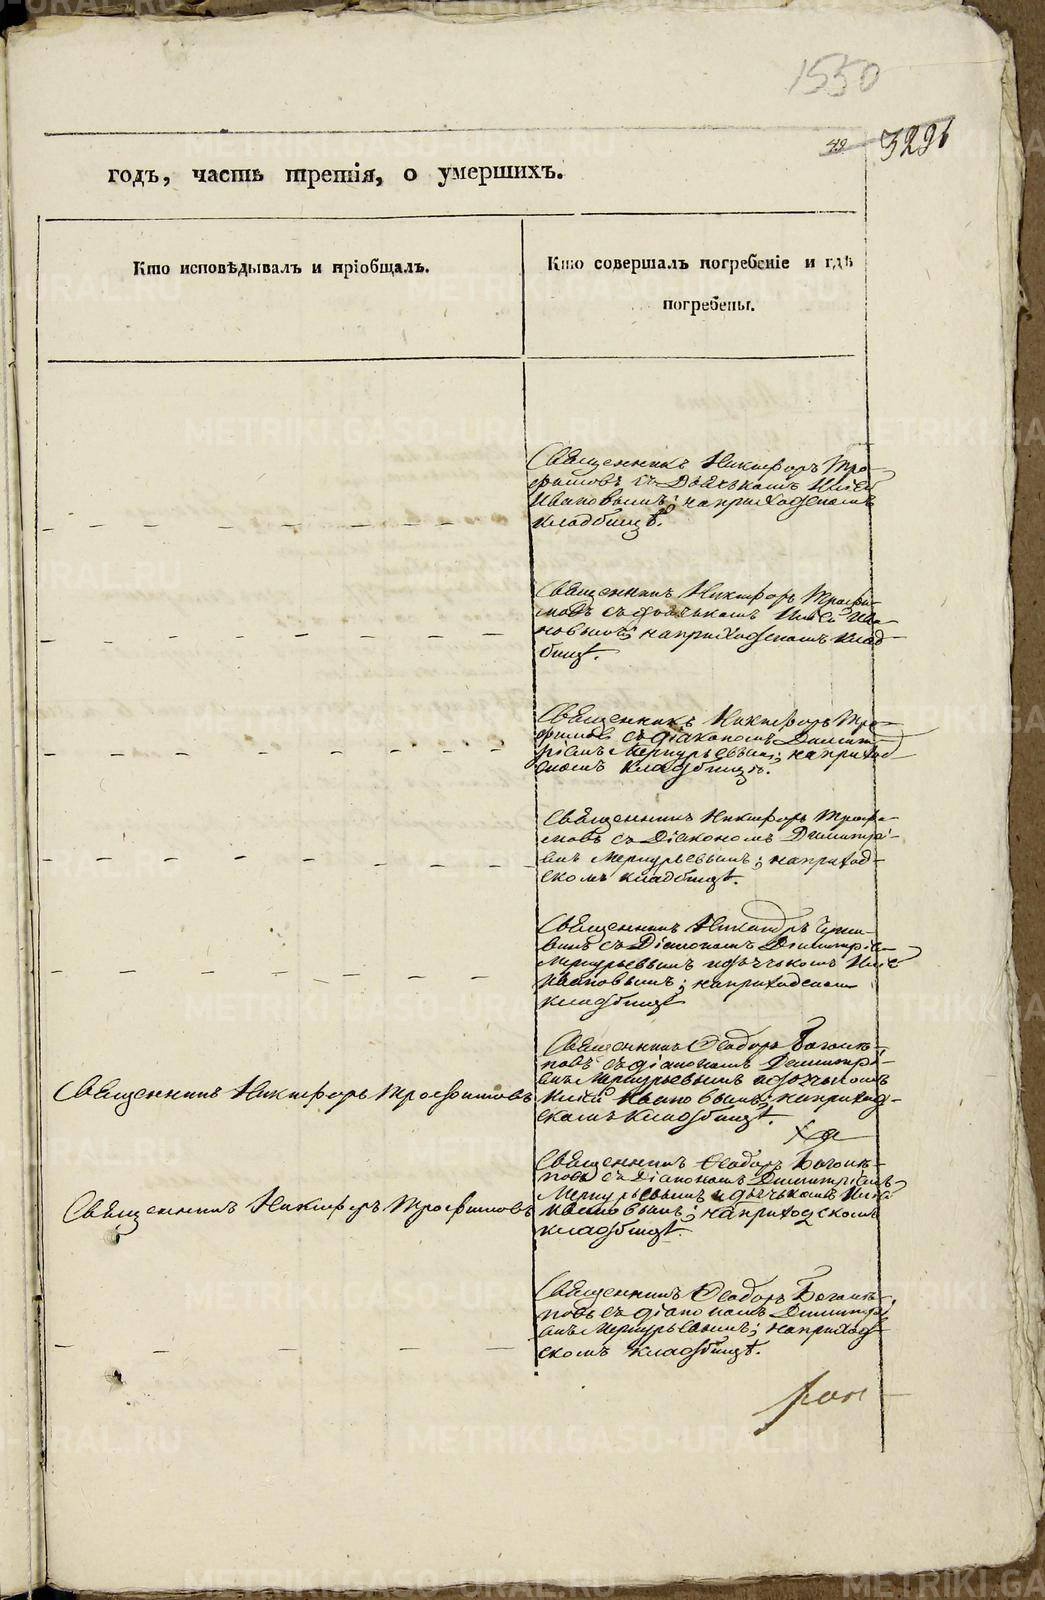 1550
49 3296
годъ, часть третія, о умершихъ.
Кто исповѣдывалъ и пріобщалъ.
Кто совершалъ погребеніе и гдѣ
погребены.
Священникъ Никифоръ Тро-
фимовъ съ Дьячькомъ
Ивановымъ; на приходскомъ
кладбищѣ.
Священникъ Никифоръ Трофи-
мовъ съ дьячькомъ Ива-
новымъ; на приходскомъ клад-
бищѣ.
Священникъ Никифоръ Тро-
фимовъ съ діакономъ Димит-
ріемъ Меркурьевымъ; на приход-
скомъ кладбищѣ.
Священникъ Никифоръ Трофи-
мовъ съ Діакономъ Димитрі-
емъ Меркурьевымъ; на приход-
скомъ кладбищѣ.
Священникъ
съ Діакономъ Димитріе
Меркурьевымъ и дьячькомъ
Ивановымъ; на приходскомъ
кладбищѣ
Священникъ Никифоръ Трофимовъ
Священникъ Ѳеодоръ
съ діакономъ Димитрі-
емъ Меркурьевымъ и дьячькомъ
Ивановымъ; на приход-
скомъ кладбищѣ.
Священникъ Никифоръ Трофимовъ
Священникъ Ѳеодоръ
съ Діакономъ Димитріемъ
Меркурьевымъ и дьячькомъ
Ивановымъ; на приходскомъ
кладбищѣ.
Священникъ Ѳеодоръ
съ діакономъ Димитрі-
емъ Меркурьевымъ; на приход-
скомъ кладбищѣ.
METRIKI.GASO-URAL.RU